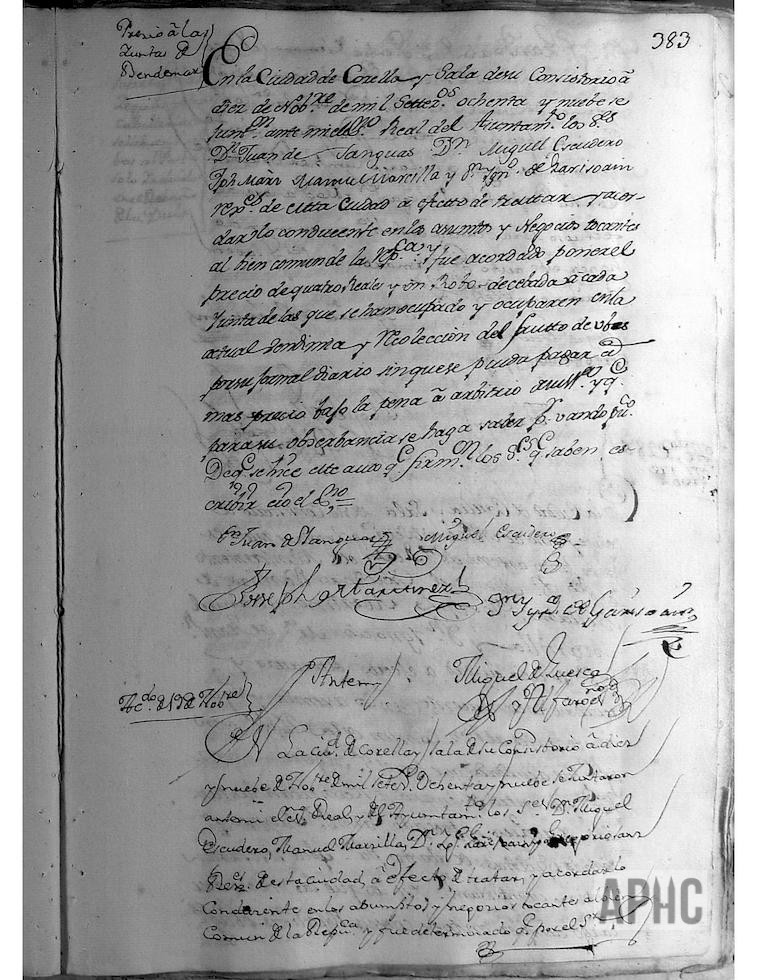 383
Precio â las
Juntas de
Bendemar
En la Ciudad de Corella y Sala de su Consistorio â
diez de Nobre de mil Settecos ochenta y nuebe se
juntn ante mi el Sno Real del Aiuntamto los Ses
Dn Juan de Sanguas Dn Miguel Escudero
Jph Marz Manuel Marcilla y Dn Ygno de Garisoain
rexes de esta Ciudad a efecto de trattar y acor-
dar lo conducente en los asuntos y Negocios tocantes
al bien comun de la Rpca y fue acordado poner el
precio de quatro Reales y un Robo de cebada â cada
Junta de las que se han ocupado y ocuparen en la
actual vendimia y Recoleccion del frutto de ubas
por su jornal diario sin que se pueda pagar â
mas precio bajo la pena â arbitrio y qe
para su obserbancia se haga saber pr vando puco
De qe se hice este auto qe firmn los Ses qe saben es-
cribir e yo el Sno
Dn Juan de Sanguas Miguel Escudero
Joseph Martinez Dn Ygno de Garisoain
Ante mi Miguel de Luesca
y Alfaro no
de 19 de Nobre
En La ciud de Corella y sala de su Consistorio â diez
y nuebe de Nobre de mil Setecs Ochenta y nuebe se Juntaron
ante mi el Sno Real y del Ayuntamto los Ses Dn Miguel
Escudero, Manuel Marsilla, Dn y Gregorio
Rexs de esta ciudad, â efecto de tratar, y acordar lo
Conducente en los asumptos y negocios tocantes al bien
Comun de la Repca y fue determinado qe por el Sr
APHC